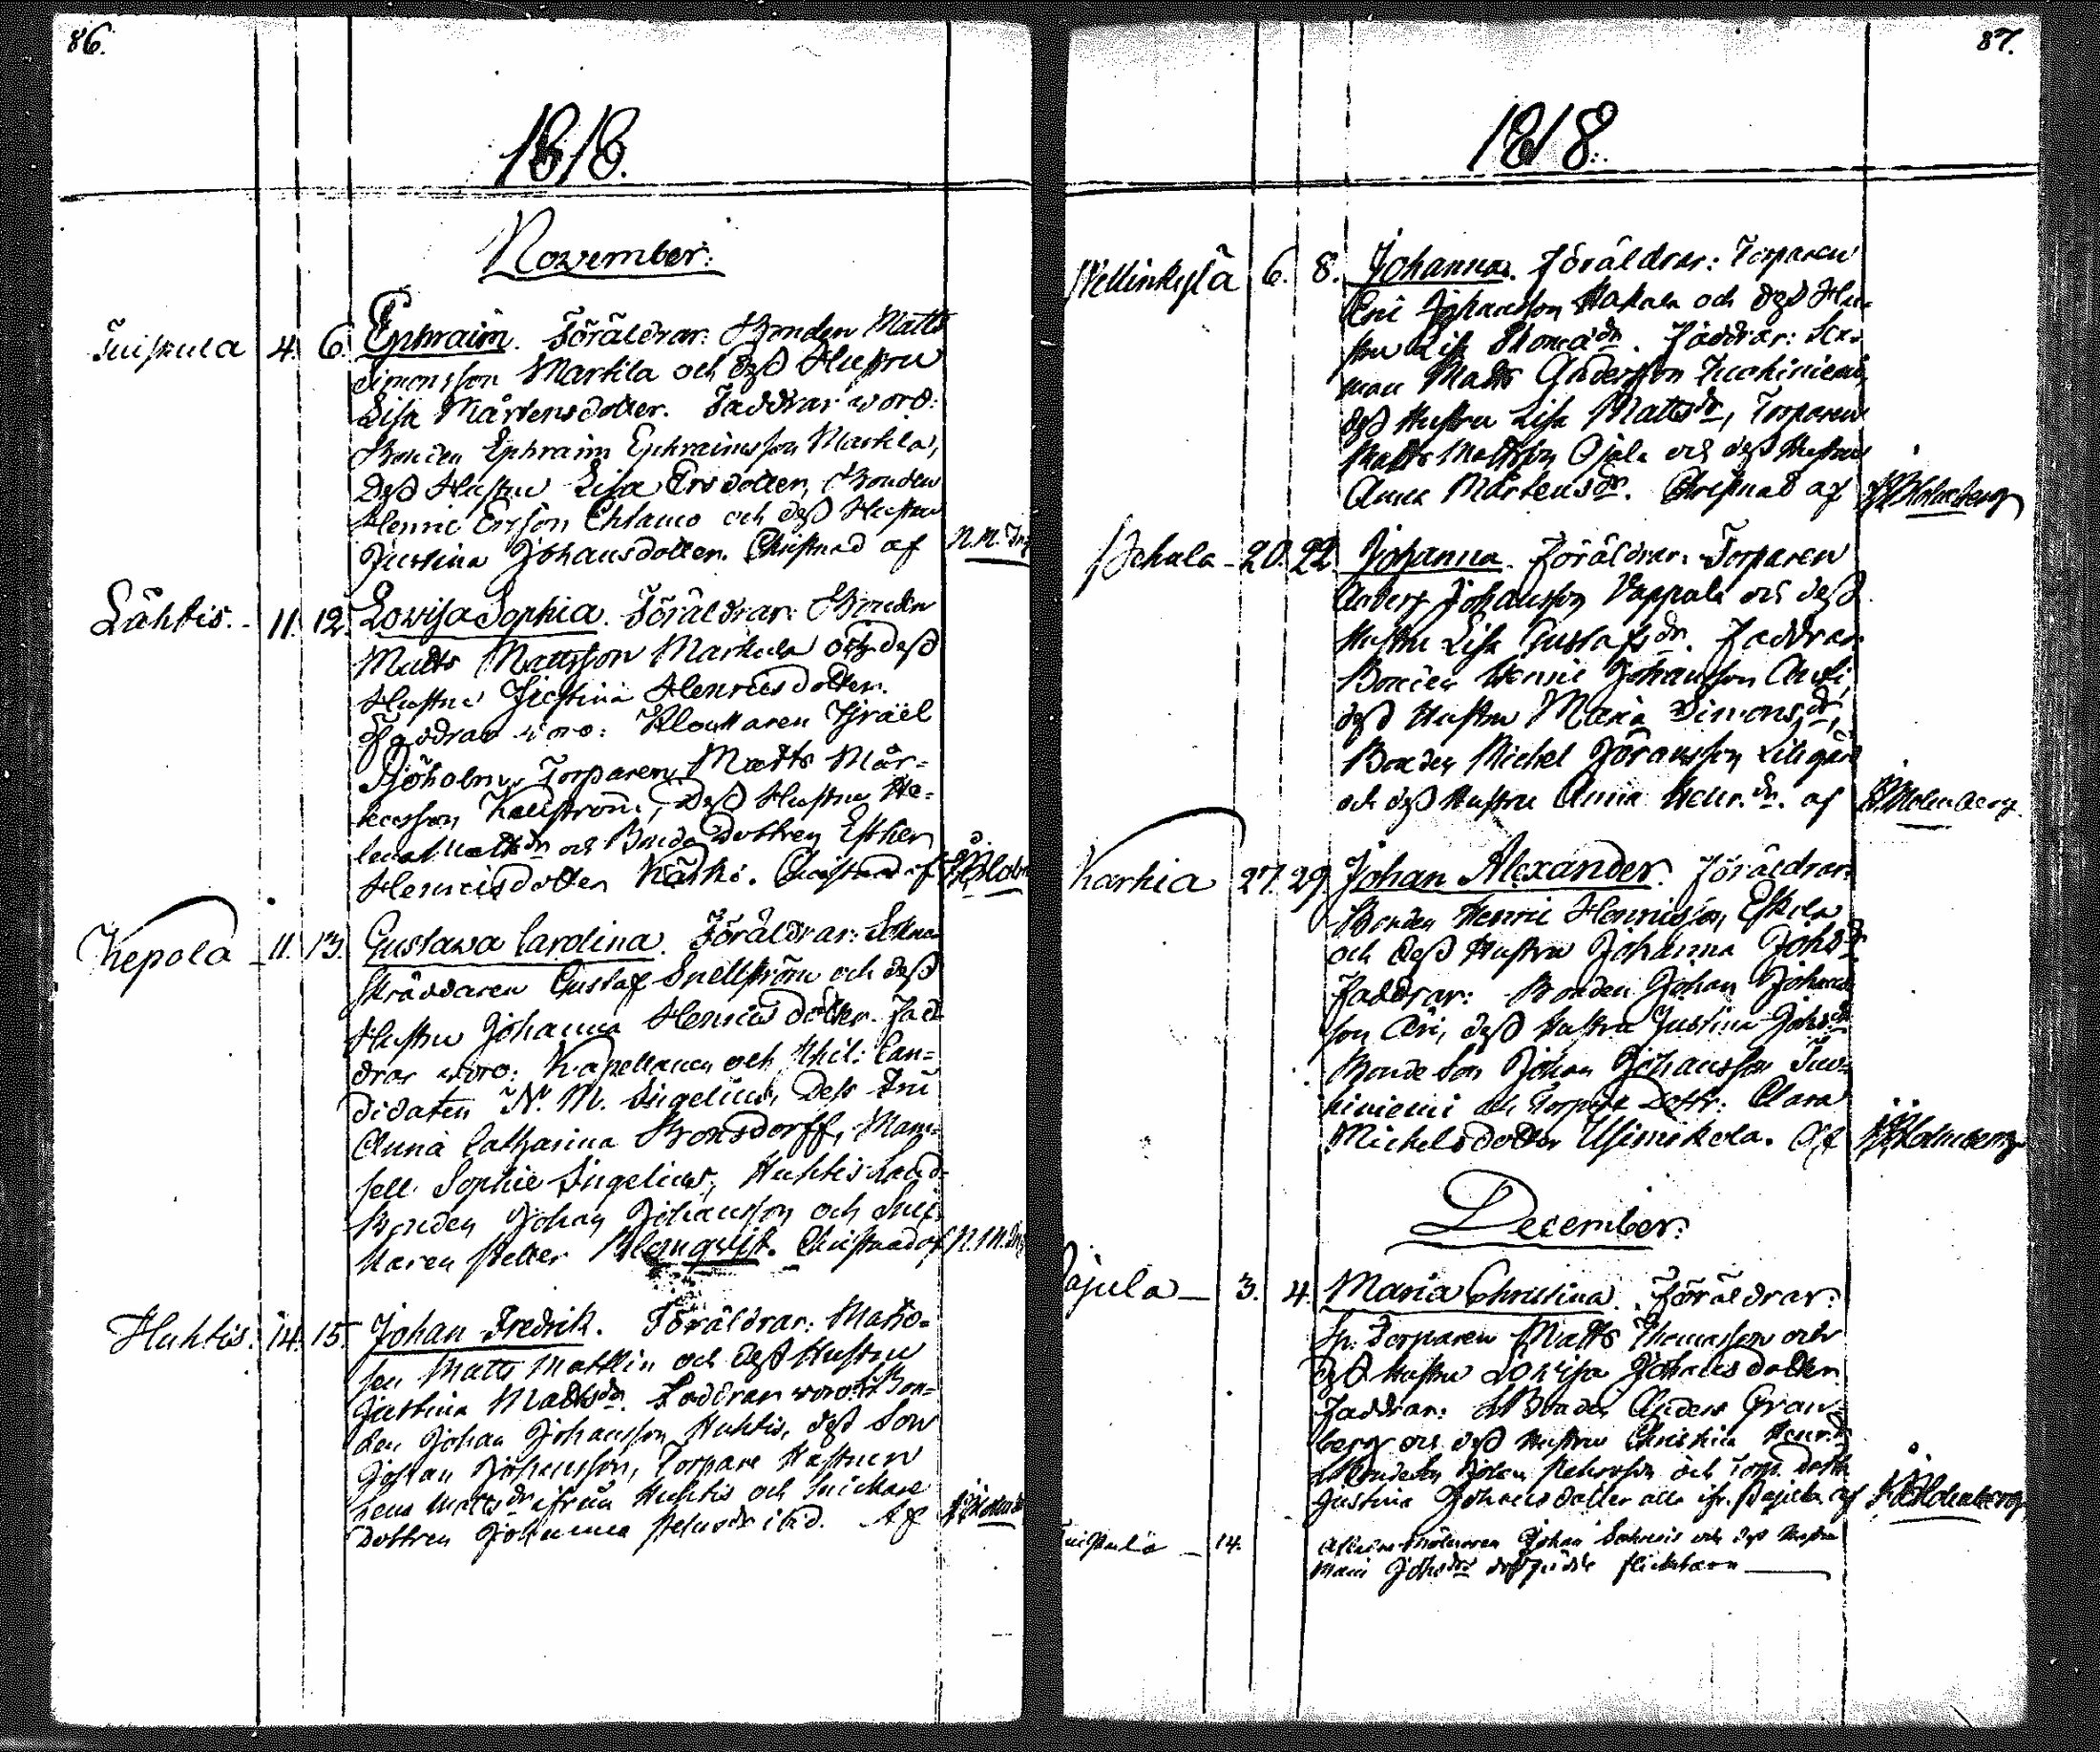 86.
1818.
November:
Tuiskula 4. 6. Ephraim. Föräldrar: Bonden Matts
Simonsson Markila och dess Hustru
Lisa Mårtensdotter. Faddrar woro:
Bonden Ephraim Ephraimsson Markila,
dess Hustru Lisa Ersdotter, Bonden
Henric Ersson och dess Hustru
Justina Johansdotter. Christnad af N. M.
Lähtis. 11. 12. Lovisa Sophia. Föräldrar: Bonden
Matts Mattsson Markula och dess
Hustru Justina Henricsdotter.
Faddrar woro: Klockaren Israel
Sjöholm, Torparen Matts Mår-
tensson Kallström, dess Hustru He-
lena Mattsdr och Bonde Dottren Esther
Henricsdotter Kärki. Christnad af
Kepola 11. 13. Gustawa Carolina. Föräldrar: Sokne
skräddaren Gustaf Snellström och dess
Hustru Johanna Henricsdotter. Fad-
drar woro: Kapellanen och Phil: Can-
didaten N. M. Ingelius, Dess Fru
Anna Catharina Bonsdorff, Mam-
sell Sophie Ingelius, Huhtis
Bonden Johan Johansson och
karen Petter Blomqvist. Christnad af N. M.
Huhtis. 14. 15. Johan Fredrik. Föräldrar: Matro-
sen Matts Mattlin och dess Hustru
Justina Mattsdr. Faddrar woro: Bon-
den Johan Johansson Huhtis, dess Son
Johan Johansson, Torpare Hustrun
Lena Mattsdr ifrån Huhtis och Snickare
Dottren Johanna Petersdr ibid. Af
87.
1818.
Wellinkylä 6. 8. Johanna. Föräldrar: Torparen
Eric Johansson Hakala och dess Hu-
stru Lisa Thomædr. Faddrar: Sex-
man Matts Andersson Juckiniemi,
dess Hustru Lisa Mattsdr, Torparen
Matts Mattsson Ojala och dess Hustru
Anna Mårtensdr. Christnad af Holmberg
Pehula 20. 22. Johanna. Föräldrar: Torparen
Anders Johansson Pappala och dess
Hustru Lisa Gustafsdr. Faddrar:
Bonden Henric Johansson
dess Hustru Maria Simonsdr,
Bonden Michel Göransson
och dess Hustru Anna Henr.dr. af Holmberg
Karhia 27. 29. Johan Alexander. Föräldrar:
Bonden Henric Henricsson Eskila
och dess Hustru Johanna Johsdr
Faddrar: Bonden Johan Johans-
son Äri, dess Hustru Justina Johsdr
Bonde Son Johan Johansson Juc-
kiniemi och Torpare Dottr: Clara
Michelsdotter Ussimikola. Af Holmberg
December:
Pajula 3. 4. Maria Christina. Föräldrar:
Sp. Torparen Matts Thomasson och
dess Hustru Lovisa Johansdotter
Faddrar: Bonden Anders Gran-
berg och dess Hustru Christina Henr.dr
Bondeson Johan Petersson och Torp. dottr
Justina Johansdotter alla ifr. Pajula af Holmberg
Tuiskula 14. Johan och dess Hustru
Maria Johsdr dödfödde flickebarn